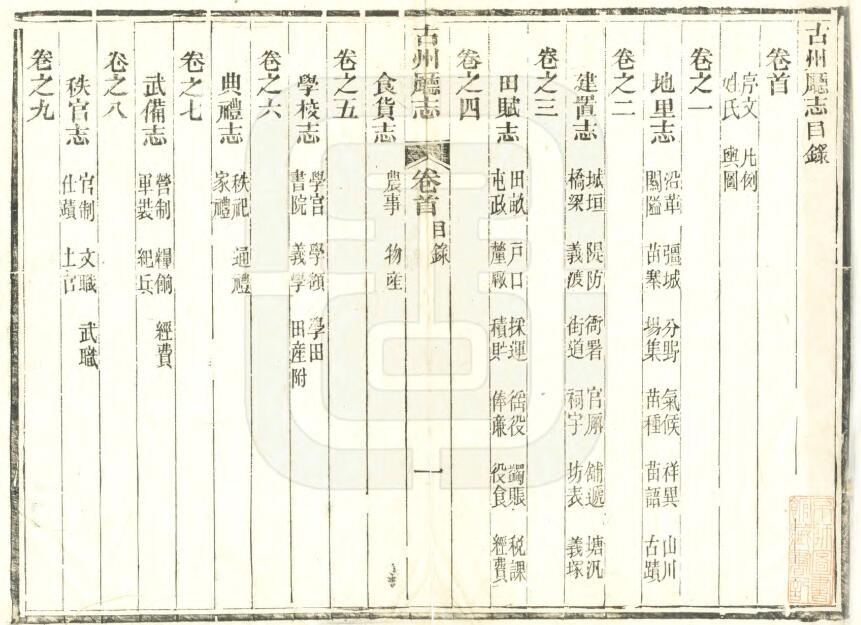 古州廳志目錄
卷首
序文 凡例
姓氏 輿圖
卷之一
地里志
沿革 疆域 分野 氣候 祥異 山川
關隘 苗寨 場集 苗種 苗語 古蹟
卷之二
建置志
城垣 隄防 衙署 官廨 舖遞 塘汛
橋梁 義渡 街道 祠宇 坊表 義塚
卷之三
田賦志
田畝 戶口 採運 徭役 蠲賑 税課
屯政 釐廠 積貯 俸廉 役食 經費
卷之四
古州廳志 卷首 目錄 一
食貨志
農事 物産
卷之五
學校志
學宮 學額 學田
書院 義學 田産附
卷之六
典禮志
秩祀 通禮
家禮
卷之七
武備志
營制 糧餉 經費
軍裝 紀兵
卷之八
秩官志
官制 文職 武職
仕蹟 土官
卷之九